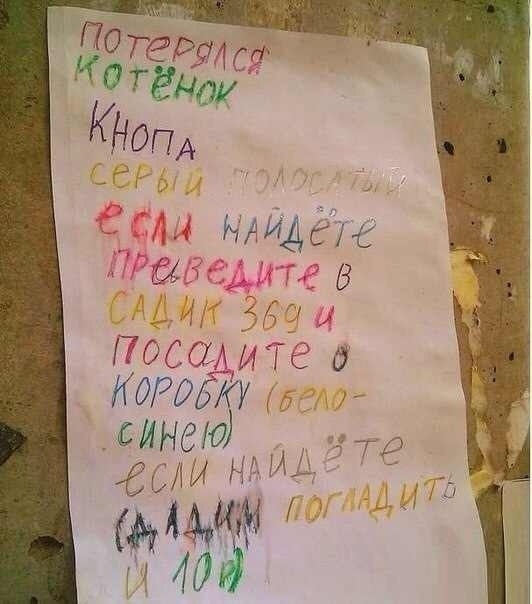 ПОТЕРЯЛСЯ
КОТЁНОК
КНОПА
СЕРЫЙ ПОЛОСАТЫЙ
ЕСЛИ НАЙДЁТЕ
ПРЕВЕДИТЕ В
САДИК 369 И
ПОСАДИТЕ
КОРОБКУ (БЕЛО-
СИНЕЮ)
ЕСЛИ НАЙДЁТЕ
ДАДИМ ПОГЛАДИТЬ
И 10 Р